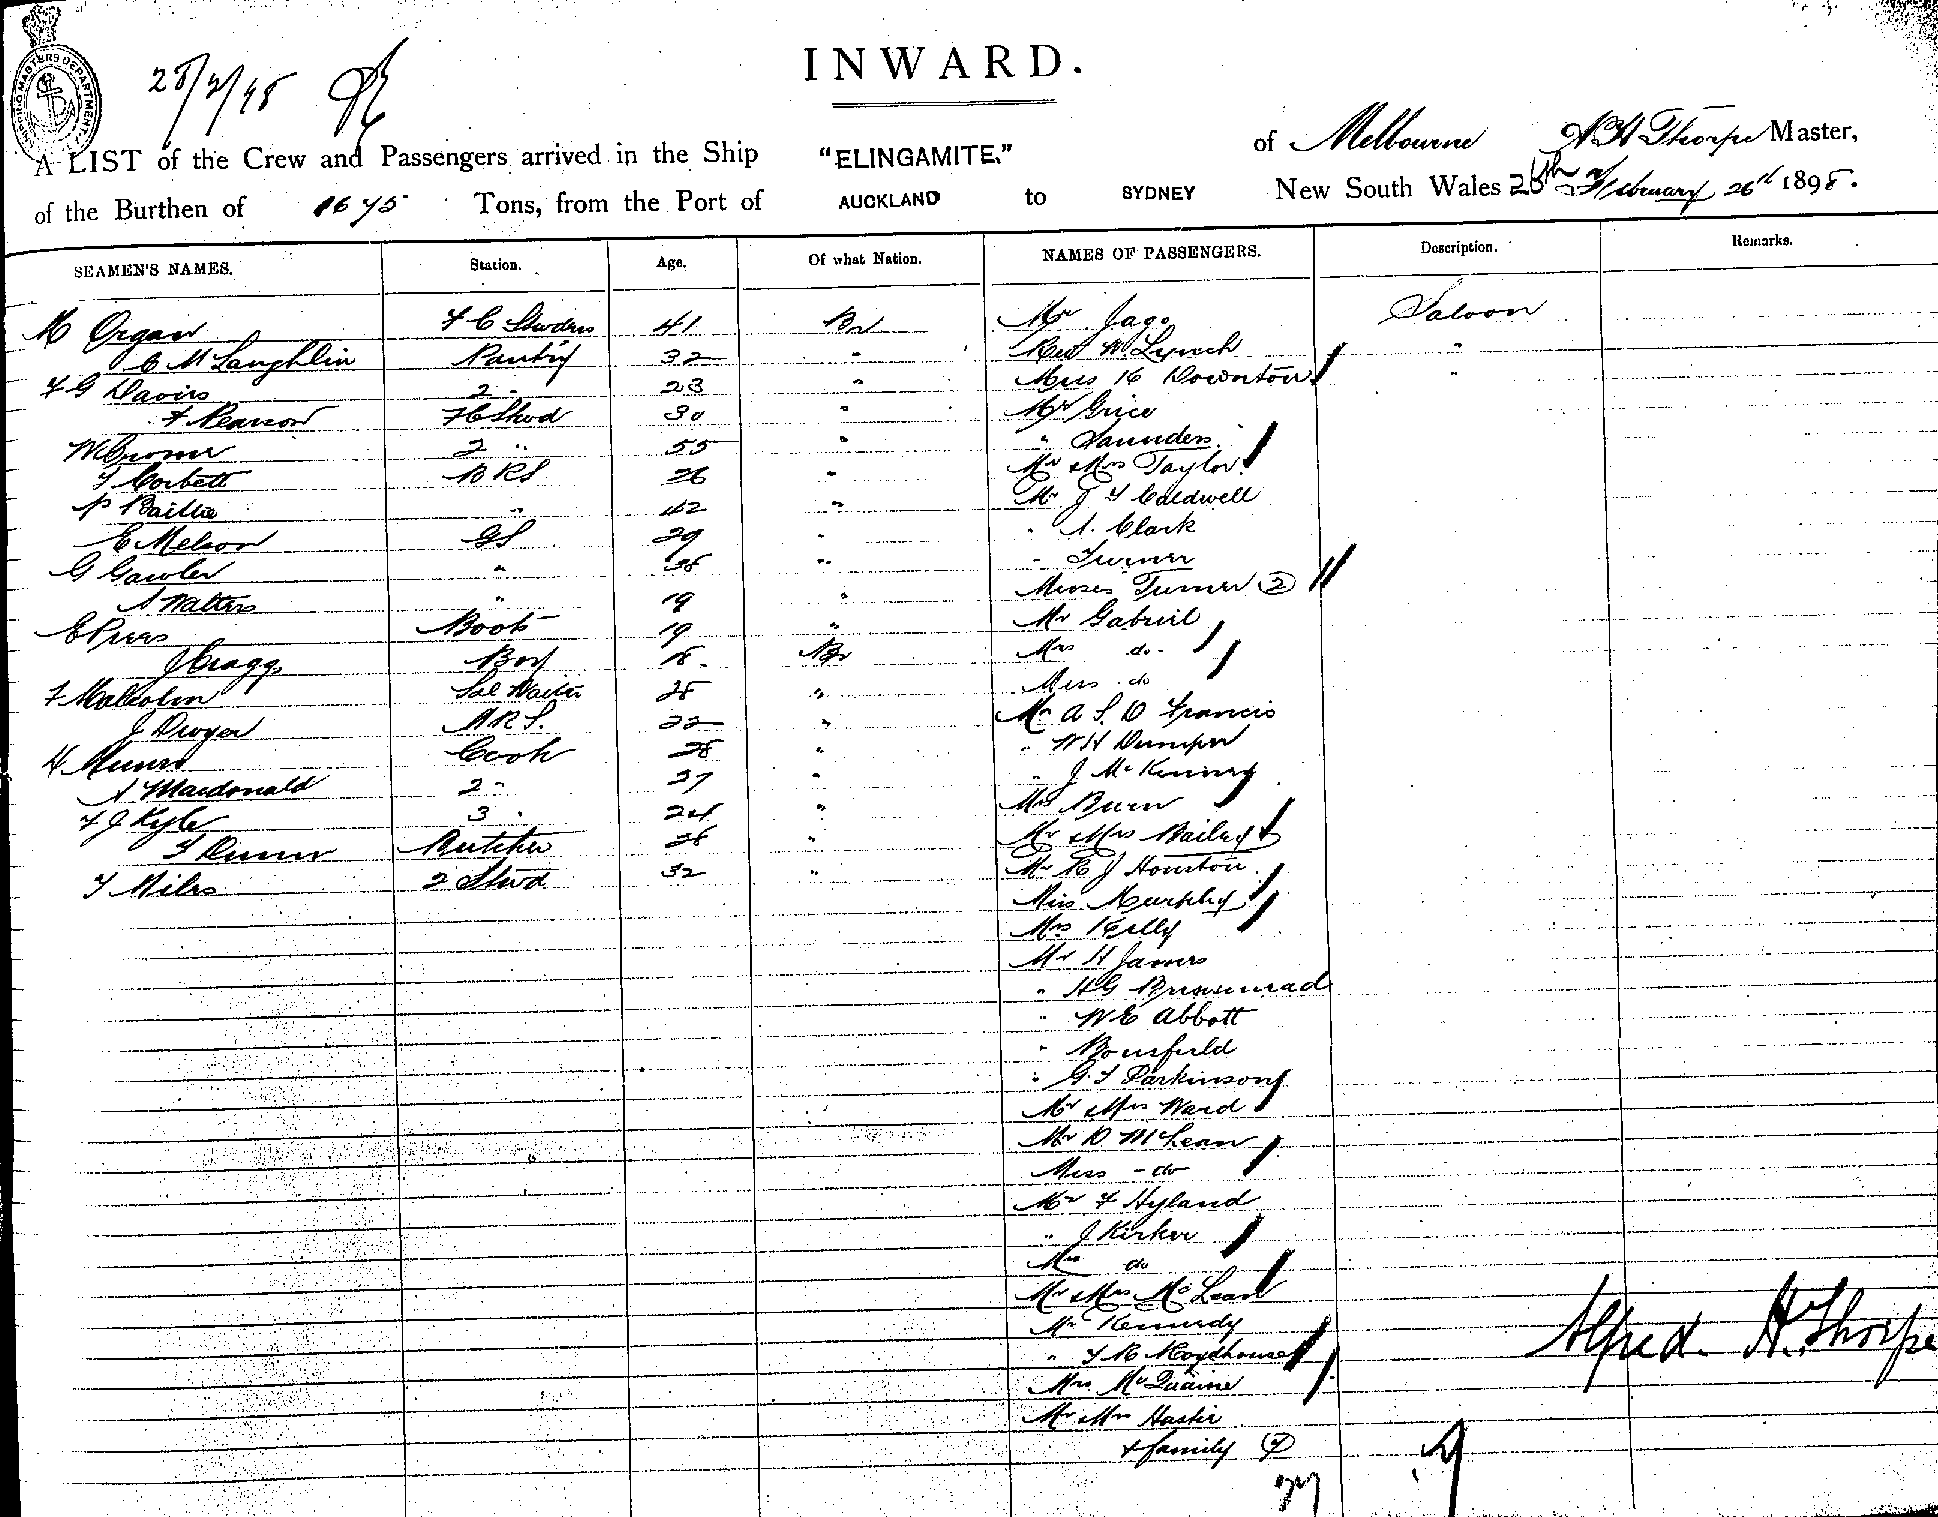 INWARD.
28/2/98
A LIST of the Crew and Passengers arrived in the Ship "ELINGAMITE," of Melbourne A H Thorpe Master,
of the Burthen of 1675 Tons, from the Port of AUCKLAND to SYDNEY New South Wales 26th February 26th 1898.
SEAMEN'S NAMES. Station. Age. Of what Nation. NAMES OF PASSENGERS. Description. Remarks.
M Organ F C Stwdess 41 Br Mr Jago Saloon
C McLaughlin Pantry 32 " Rev W Lynch "
F G Davies 2 " 23 " Miss K Downton "
F Pearson F C Stwd 30 " Mr Grice
W 2 " 55 " " Saunders
T Corbett B R S 26 " Mr & Mrs Taylor
P Baillie " 42 " Mr J T Caldwell
E Melson G S 29 " " A. Clark
G Gawler " 28 " " Turner
A Walters " 19 " Misses Turner 2
E Piers Boots 19 " Mr Gabriel
J Cragg Boy 18 Br Mrs do
F Malcolm Sal Waiter 28 " Miss do
J Dwyer B R S. 22 " Mr A S. D Francis
H Munro Cook 28 " " W H
A Macdonald 2 " 27 " " J McKinney
F J Kyle 3 " 24 " Mrs Burn
T Dunn Butcher 28 " Mr & Mrs Bailey
T Miles 2 Stwd 32 " Mr R J Houston
Miss Murphy
Mrs Kelly
Mr H James
" H G
" W E Abbott
" Bousfield
" G. T Parkinson
Mr & Mrs Ward
Mr D McLean
Miss - do
Mr F Hyland
" J Kirker
Mrs do
Mr & Mrs McLean
Mr Kennedy
" T R Roydhouse
Mrs McQuaine
Mr & Mrs
& family
Alfred. H. Thorpe